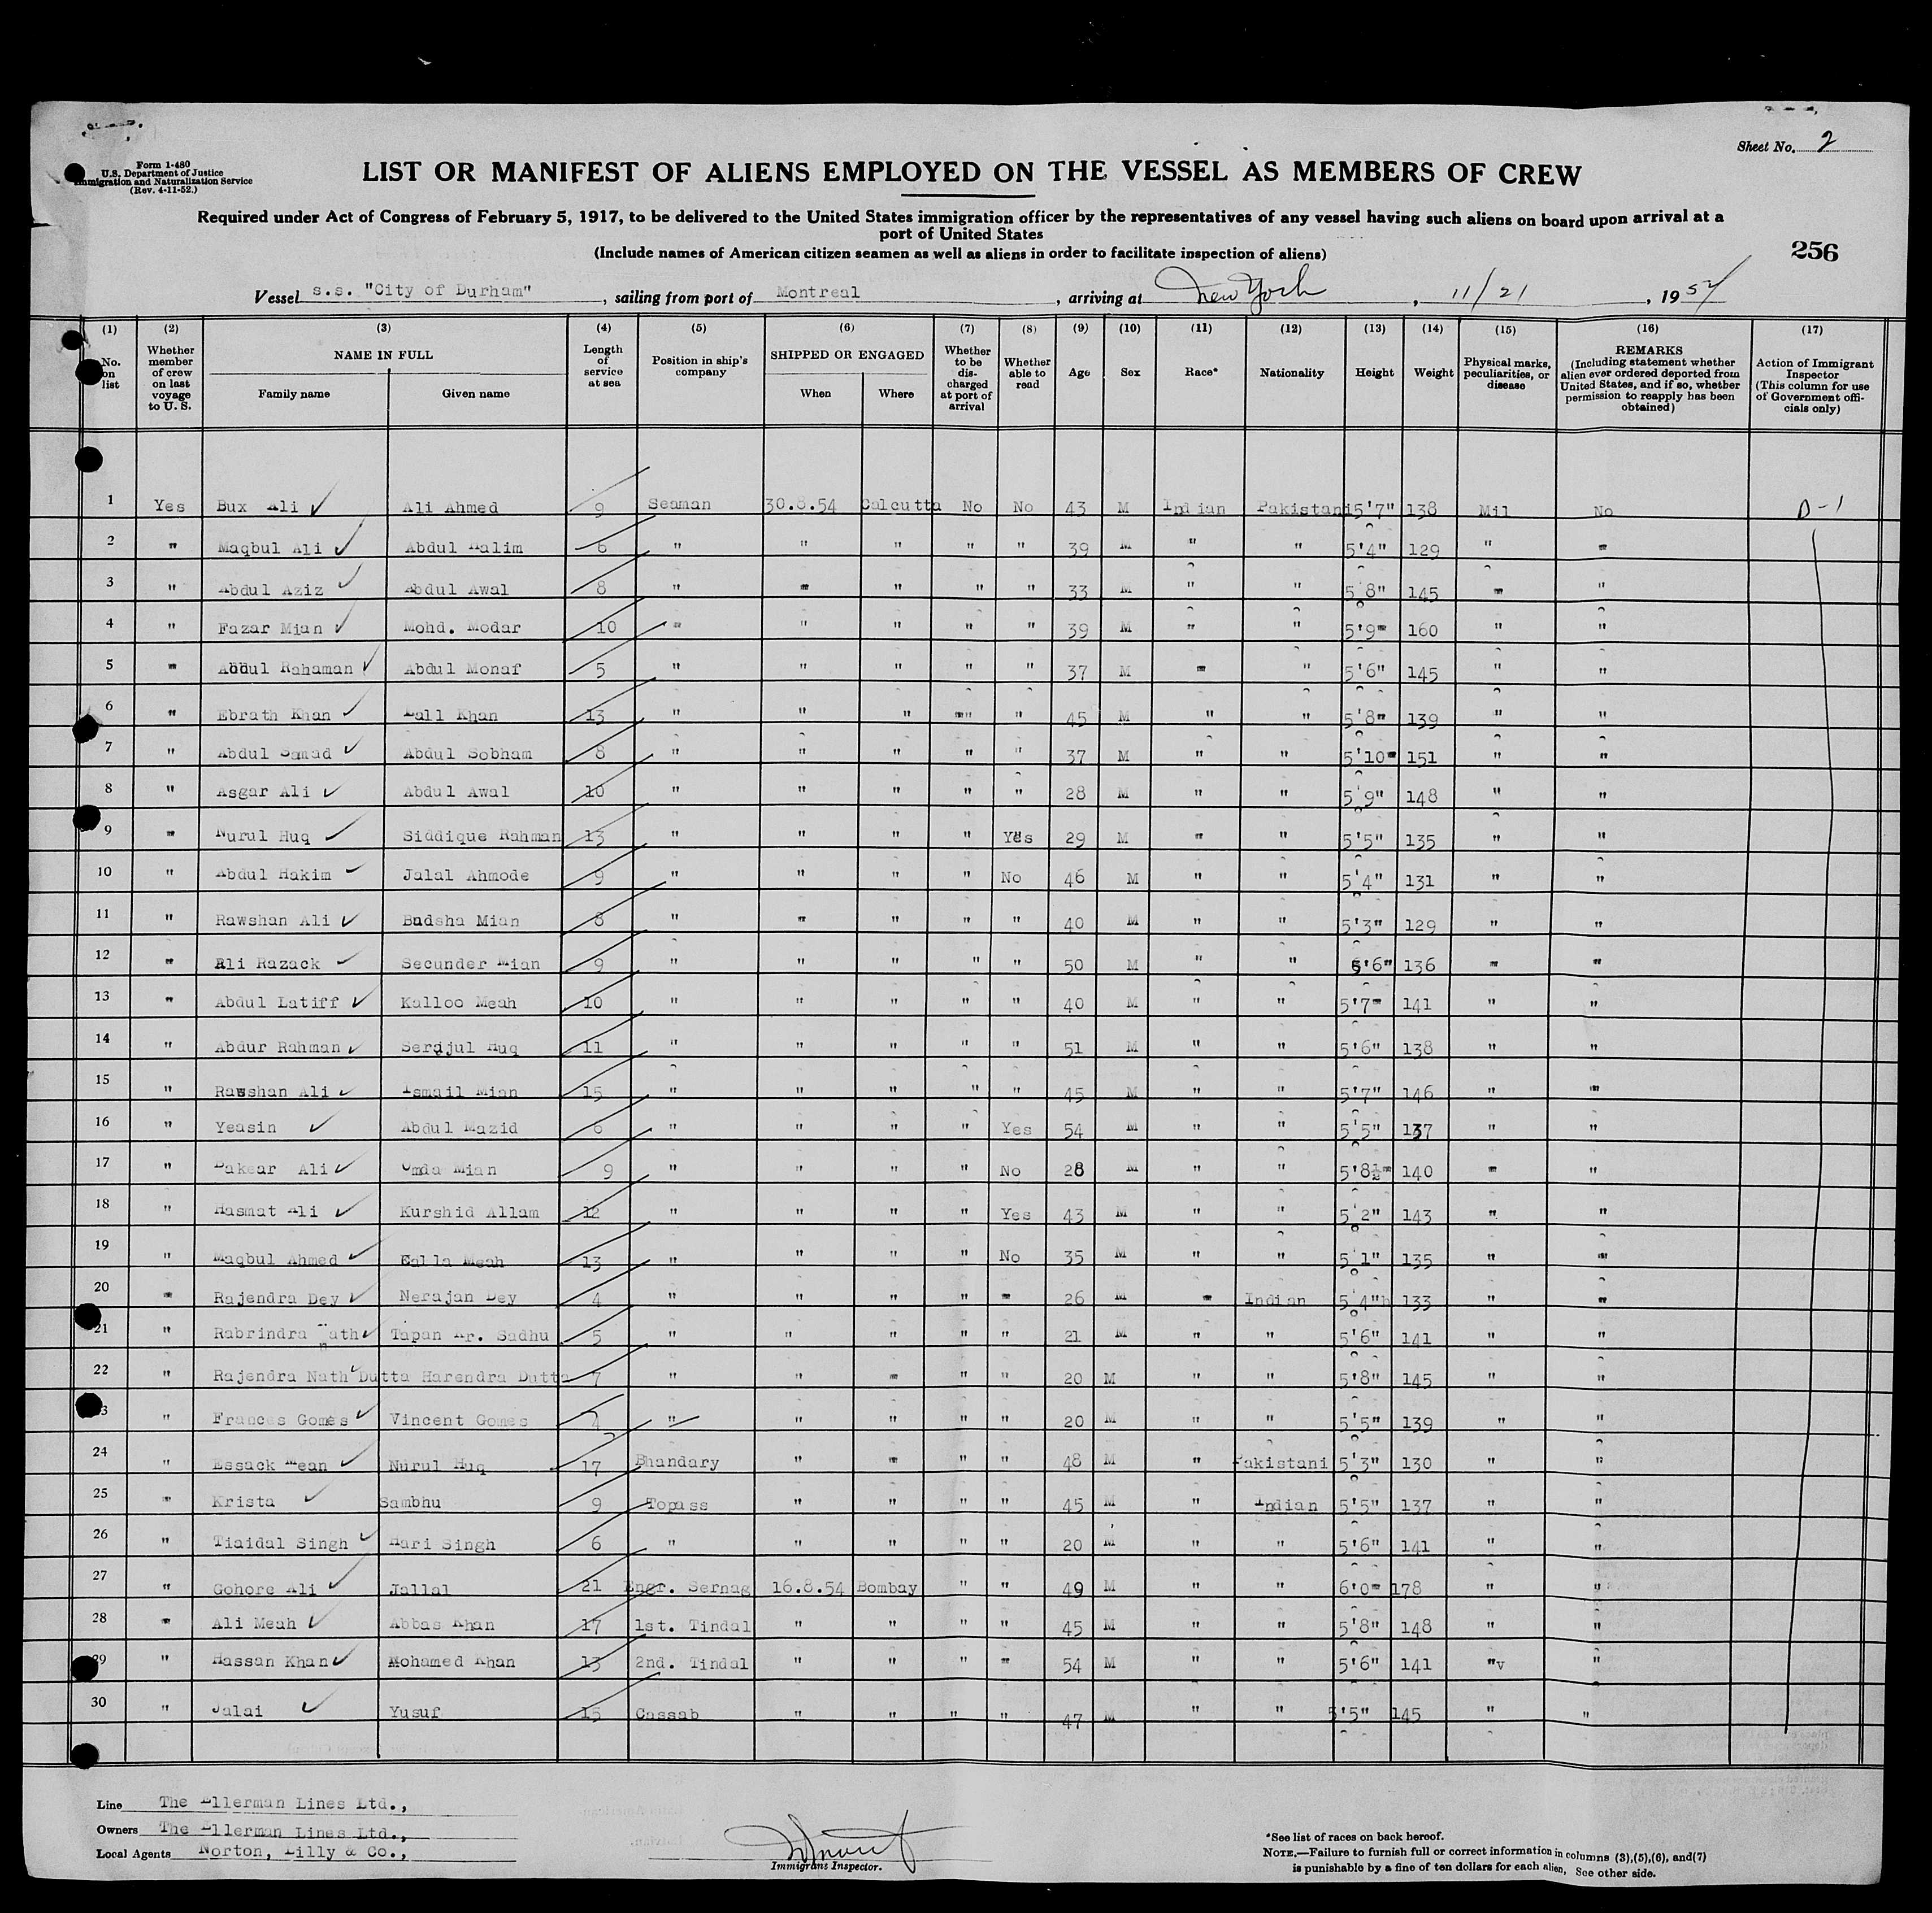 Sheet No. 2
Form 1-480
U.S. Department of Justice
Immigration and Naturalization Service
(Rev. 4-11-52.)
LIST OR MANIFEST OF ALIENS EMPLOYED ON THE VESSEL AS MEMBERS OF CREW
Required under Act of Congress of February 5, 1917, to be delivered to the United States immigration officer by the representatives of any vessel having such aliens on board upon arrival at a
port of United States
(Include names of American citizen seamen as well as aliens in order to facilitate inspection of aliens)
256
Vessel s.s. "City of Durham", sailing from port of Montreal, arriving at New York, 11/21, 1954
(1) (2) (3) (4) (5) (6) (7) (8) (9) (10) (11) (12) (13) (14) (15) (16) (17)
No. on list | Whether member of crew on last voyage to U. S. | NAME IN FULL Family name Given name | Length of service at sea | Position in ship's company | SHIPPED OR ENGAGED When Where | Whether to be discharged at port of arrival | Whether able to read | Age | Sex | Race* | Nationality | Height | Weight | Physical marks, peculiarities, or disease | REMARKS (Including statement whether alien ever ordered deported from United States, and if so, whether permission to reapply has been obtained) | Action of Immigrant Inspector (This column for use of Government officials only)
1 Yes Bux Ali Ali Ahmed 9 Seaman 30.8.54 Calcutta No No 43 M Indian Pakistani 5'7" 138 Mil No D-1
2 " Maqbul Ali Abdul Halim 6 " " " " " 39 M " " 5'4" 129 " "
3 " Abdul Aziz Abdul Awal 8 " " " " " 33 M " " 5'8" 145 " "
4 " Fazar Mian Mohd. Modar 10 " " " " " 39 M " " 5'9" 160 " "
5 " Abdul Rahaman Abdul Monaf 5 " " " " " 37 M " " 5'6" 145 " "
6 " Ebrath Khan Lall Khan 13 " " " " " 45 M " " 5'8" 139 " "
7 " Abdul Samad Abdul Sobham 8 " " " " " 37 M " " 5'10" 151 " "
8 " Asgar Ali Abdul Awal 10 " " " " " 28 M " " 5'9" 148 " "
9 " Nurul Huq Siddique Rahman 13 " " " " Yes 29 M " " 5'5" 135 " "
10 " Abdul Hakim Jalal Ahmode 9 " " " " No 46 M " " 5'4" 131 " "
11 " Rawshan Ali Badsha Mian 8 " " " " " 40 M " " 5'3" 129 " "
12 " Ali Razack Secunder Mian 9 " " " " " 50 M " " 5'6" 136 " "
13 " Abdul Latiff Kalloo Meah 10 " " " " " 40 M " " 5'7" 141 " "
14 " Abdur Rahman Serajul Huq 11 " " " " " 51 M " " 5'6" 138 " "
15 " Rawshan Ali Ismail Mian 15 " " " " " 45 M " " 5'7" 146 " "
16 " Yeasin Abdul Mazid 6 " " " " Yes 54 M " " 5'5" 137 " "
17 " Ali Omda Mian 9 " " " " No 28 M " " 5'8½" 140 " "
18 " Hasmat Ali Kurshid Allam 12 " " " " Yes 43 M " " 5'2" 143 " "
19 " Maqbul Ahmed Ealla Meah 13 " " " " No 35 M " " 5'1" 135 " "
20 " Rajendra Dey Nerajan Dey 4 " " " " " 26 M " Indian 5'4" 133 " "
21 " Rabrindra Nath Tapan Kr. Sadhu 5 " " " " " 21 M " " 5'6" 141 " "
22 " Rajendra Nath Dutta Harendra Dutta 7 " " " " " 20 M " " 5'8" 145 " "
23 " Frances Gomes Vincent Gomes 4 " " " " " 20 M " " 5'5" 139 " "
24 " Essack Mean Nurul Huq 17 Bhandary " " " " 48 M " Pakistani 5'3" 130 " "
25 " Krista Sambhu 9 Topass " " " " 45 M " Indian 5'5" 137 " "
26 " Tiaidal Singh Hari Singh 6 " " " " " 20 M " " 5'6" 141 " "
27 " Gohore Ali Jallal 21 Engr. Sernag 16.8.54 Bombay " " 49 M " " 6'0" 178 " "
28 " Ali Meah Abbas Khan 17 1st. Tindal " " " " 45 M " " 5'8" 148 " "
29 " Hassan Khan Mohamed Khan 13 2nd. Tindal " " " " 54 M " " 5'6" 141 "v "
30 " Jalai Yusuf 15 Cassab " " " " 47 M " " 5'5" 145 " "
Line The Ellerman Lines Ltd.,
Owners The Ellerman Lines Ltd.,
Local Agents Norton, Lilly & Co.,
Immigrans Inspector.
*See list of races on back hereof.
NOTE.—Failure to furnish full or correct information in columns (3),(5),(6), and(7)
is punishable by a fine of ten dollars for each alien, See other side.